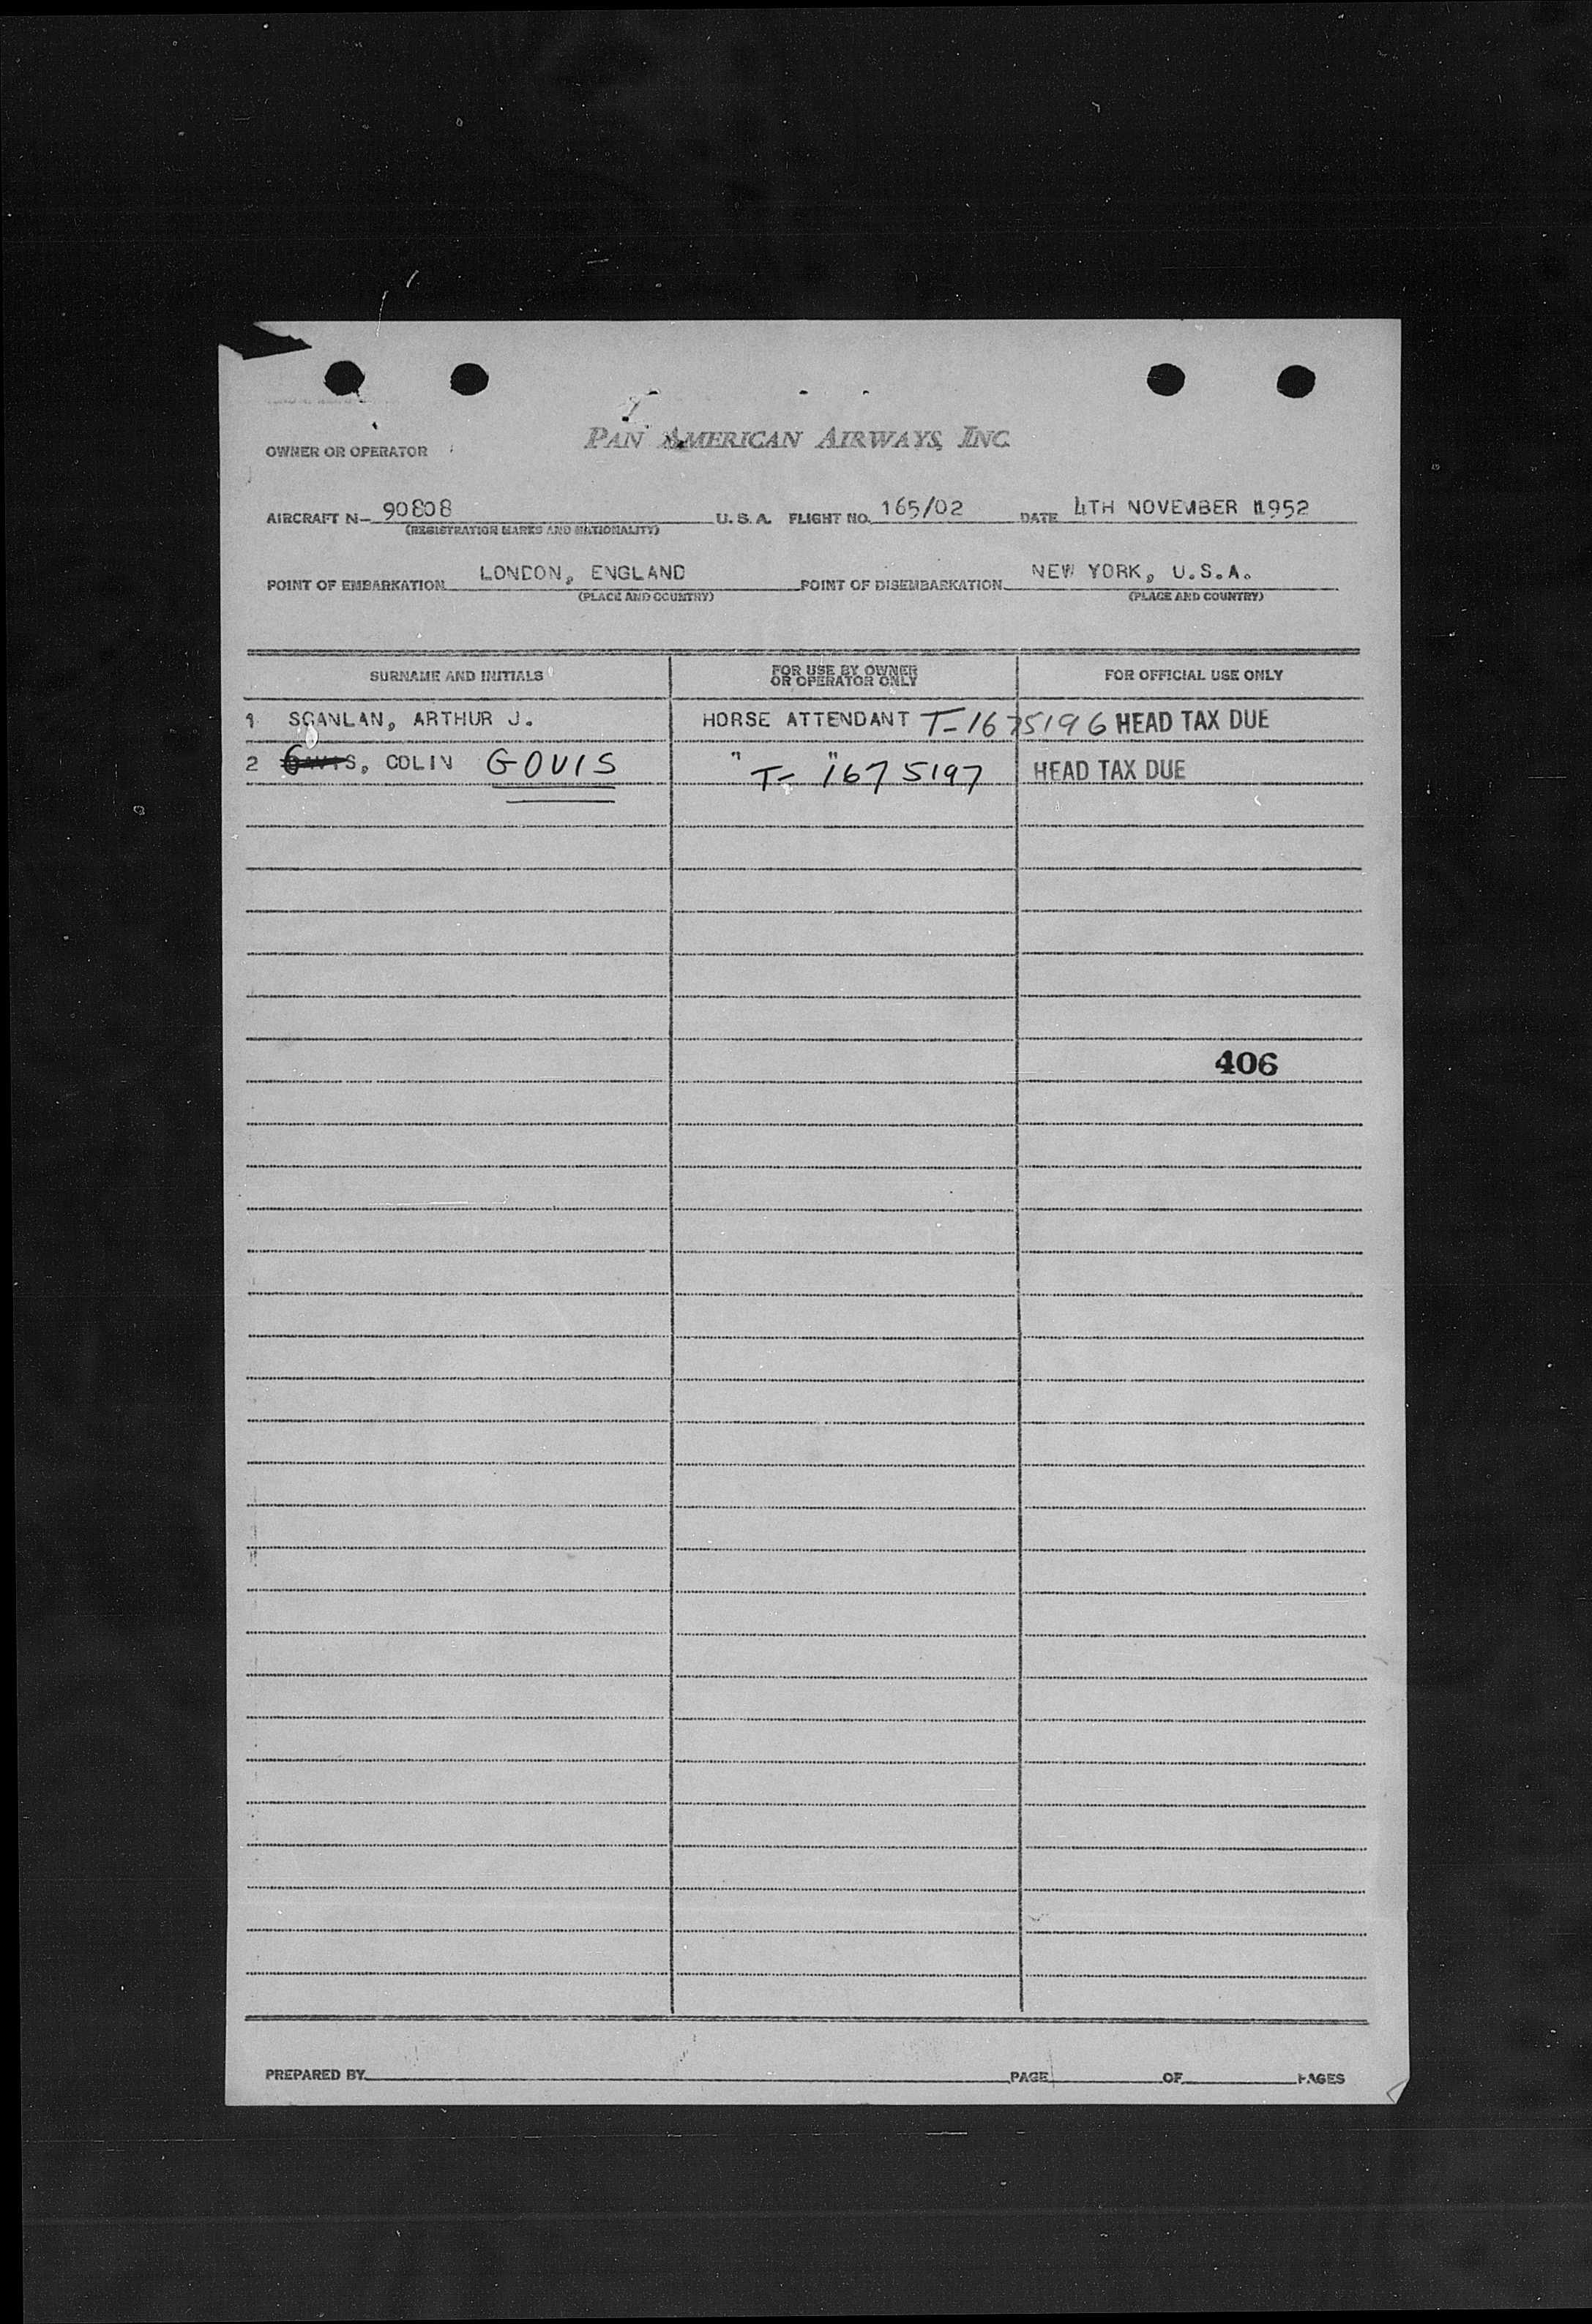 PAN AMERICAN AIRWAYS, INC.
OWNER OR OPERATOR
AIRCRAFT N- 90808 U. S. A. FLIGHT NO. 165/02 DATE 4TH NOVEMBER 1952
(REGISTRATION MARKS AND NATIONALITY)
POINT OF EMBARKATION LONDON, ENGLAND POINT OF DISEMBARKATION NEW YORK, U.S.A.
(PLACE AND COUNTRY) (PLACE AND COUNTRY)
SURNAME AND INITIALS FOR USE BY OWNER OR OPERATOR ONLY FOR OFFICIAL USE ONLY
1 SCANLAN, ARTHUR J. HORSE ATTENDANT T-1675196 HEAD TAX DUE
2 COLIN GOVIS " " T- 1675197 HEAD TAX DUE
406
PREPARED BY PAGE OF PAGES